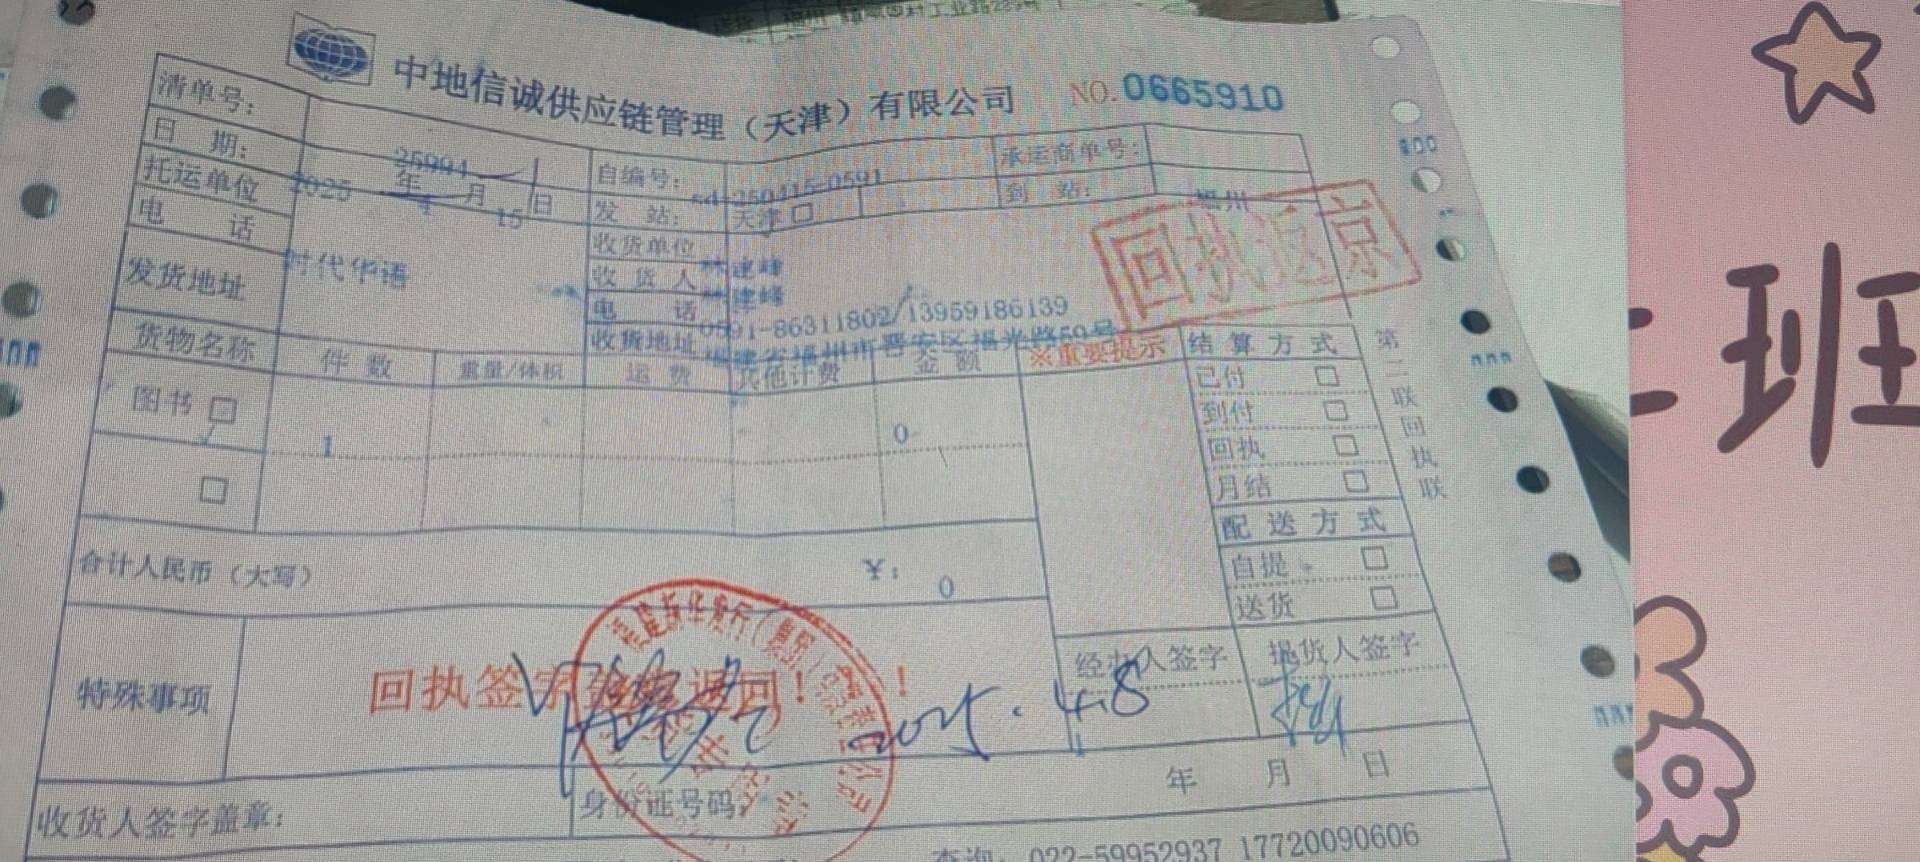 中地信诚供应链管理（天津）有限公司 NO.0665910
清单号：
25994
自编号：
250415-0591
承运商单号：
日 期：
2025 年 4 月 15 日
发 站：
天津 □
到 站：
福州
托运单位
时代华语
电 话
发货地址
收货单位
林建峰
收 货 人
林建峰
电 话
0591-86311802/13959186139
收货地址
福建省福州市晋安区福光路59号
回执返京
货物名称 件 数 重量/体积 运 费 其他计费 金 额 ※重要提示 结 算 方 式
图书 □ 1 0
□
已付 □
到付 □
回执 □
月结 □
配 送 方 式
自提 □
送货 □
第二联回执联
合计人民币（大写） ￥： 0
特殊事项
回执签字 返回！！
经办人签字
提货人签字
年 月 日
收货人签字盖章：
身份证号码：
查询：022-59952937 17720090606
班